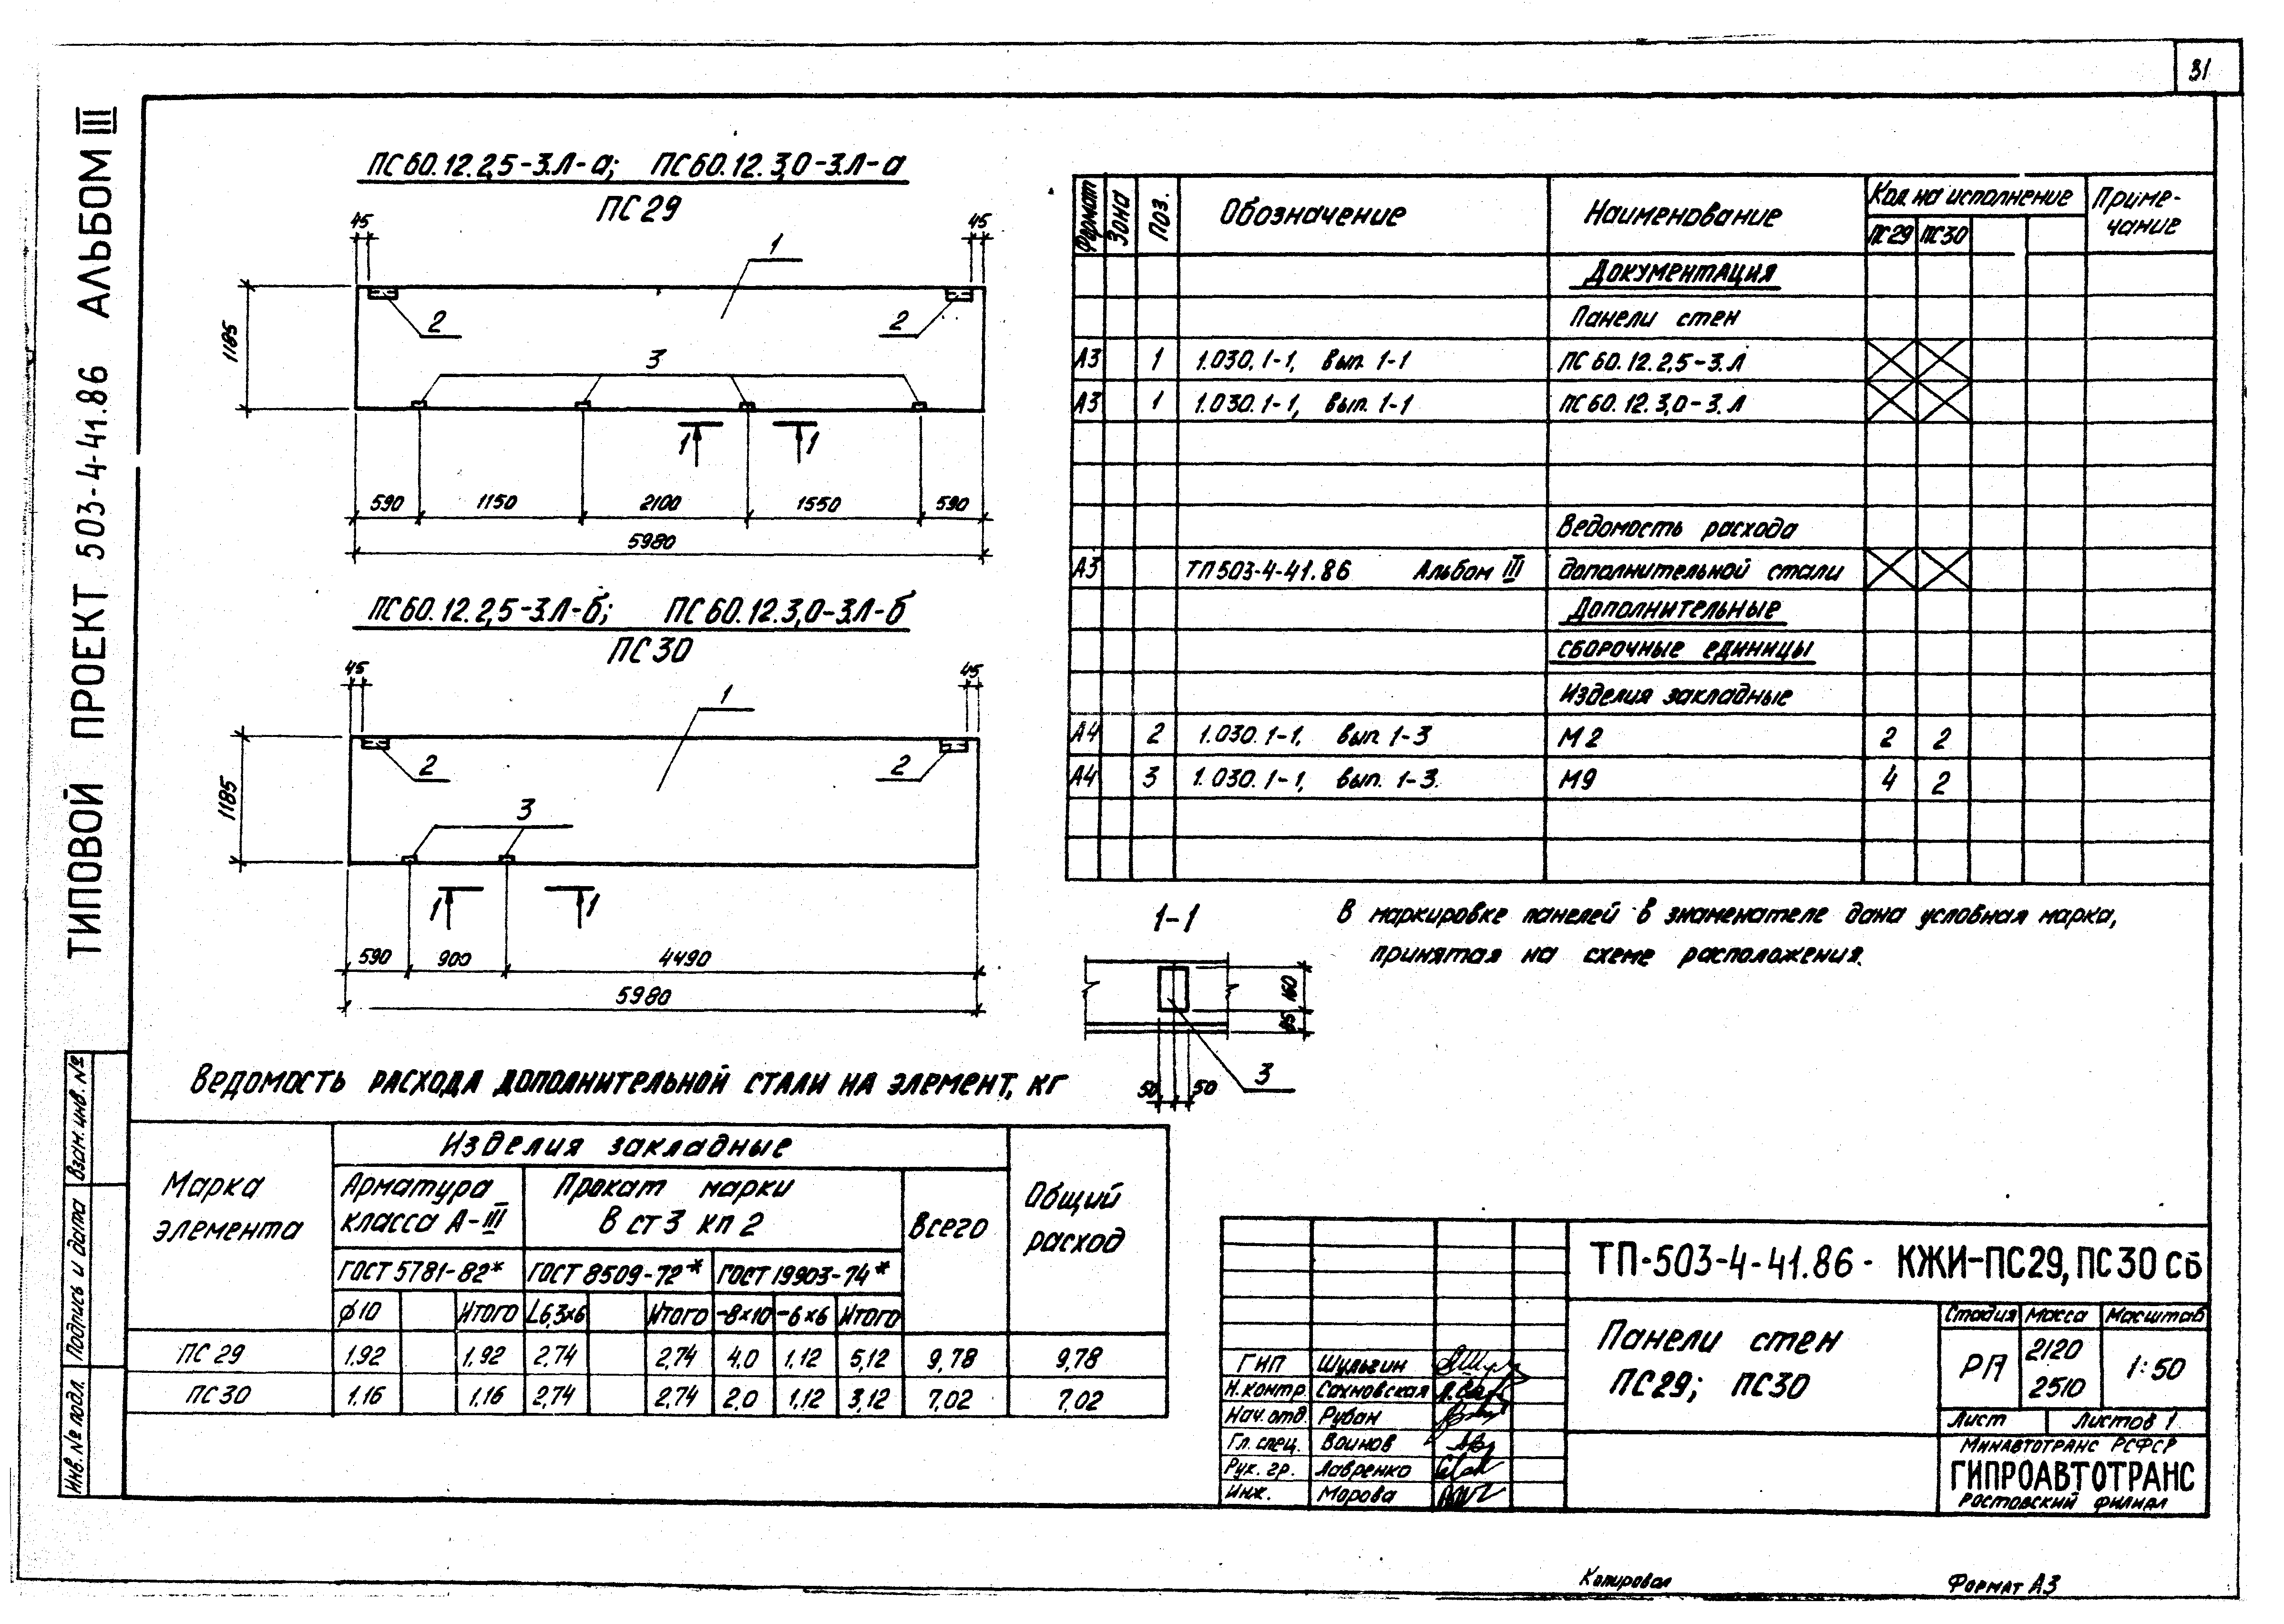 31
ТИПОВОЙ ПРОЕКТ 503-4-41.86 АЛЬБОМ III
ПС60.12.2,5-3.Л-а; ПС60.12.3,0-3.Л-а
ПС29
45
45
1
2
2
3
1185
1
1
590
1150
2100
1550
590
5980
ПС60.12.2,5-3.Л-б; ПС60.12.3,0-3.Л-б
ПС30
45
45
1
2
2
3
1185
1
1
590
900
4490
5980
Формат
Зона
Поз.
Обозначение
Наименование
Кол. на исполнение
Приме-
чание
ПС29 ПС30
Документация
Панели стен
А3 1 1.030.1-1, вып. 1-1 ПС60.12.2,5-3.Л
А3 1 1.030.1-1, вып. 1-1 ПС60.12.3,0-3.Л
Ведомость расхода
А3 ТП503-4-41.86 Альбом III дополнительной стали
Дополнительные
сборочные единицы
Изделия закладные
А4 2 1.030.1-1, вып. 1-3 М2 2 2
А4 3 1.030.1-1, вып. 1-3. М9 4 2
1-1
160
85
50
50
3
В маркировке панелей в знаменателе дана условная марка,
принятая на схеме расположения.
Ведомость расхода дополнительной стали на элемент, кг
Марка
элемента
Изделия закладные
Арматура
класса А-III
Прокат марки
В ст3 кп 2
Всего
Общий
расход
ГОСТ 5781-82* ГОСТ 8509-72* ГОСТ 19903-74*
ϕ10 Итого L6,3х6 Итого -8х10 -6х6 Итого
ПС 29 1,92 1,92 2,74 2,74 4,0 1,12 5,12 9,78 9,78
ПС30 1,16 1,16 2,74 2,74 2,0 1,12 3,12 7,02 7,02
Взам. инв. №
Подпись и дата
Инв. № подл.
ТП-503-4-41.86- КЖИ-ПС29, ПС30 СБ
Панели стен
ПС29; ПС30
Стадия Масса Масштаб
РП
2120
2510
1:50
Лист Листов 1
Минавтотранс РСФСР
ГИПРОАВТОТРАНС
Ростовский филиал
ГИП Шульгин
Н. контр. Сахновская
Нач. отд. Рубан
Гл. спец. Воинов
Рук. гр. Лавренко
Инж. Марова
Копировал
Формат А3